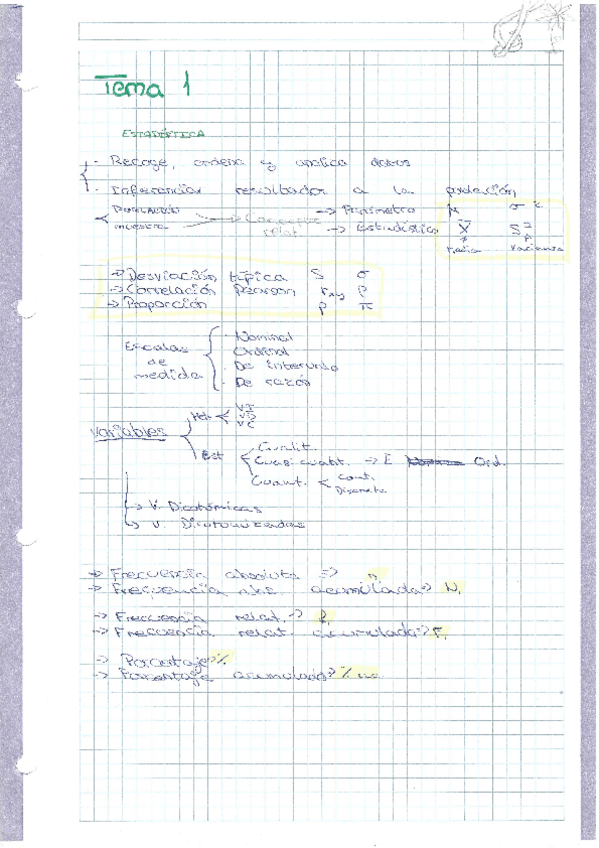 Tema 1
ESTADÍSTICA
- Recoge, ordena y analiza datos
- Inferenciar resultados a la población
POBLACIÓN -> Parámetro μ σ²
MUESTRA -> Concepto relat. -> Estadístico X̄ S²
Media Varianza
-> Desviación típica S σ
-> Correlación Pearson rxy ρ
-> Proporción p π
Escalas de medida
- Nominal
- Ordinal
- De intervalo
- De razón
Variables
Met. VI VD VE
Est Cualit.
Cuasicuantit. -> E Ord.
Cuant. cont. Discreta
-> V. Dicotómicas
-> V. Dicotomizadas
-> Frecuencia absoluta => nᵢ
-> Frecuencia abs. acumulada => Nᵢ
-> Frecuencia relat. -> fᵢ
-> Frecuencia relat. acumulada => Fᵢ
-> Porcentaje => %
-> Porcentaje acumulado => % ac